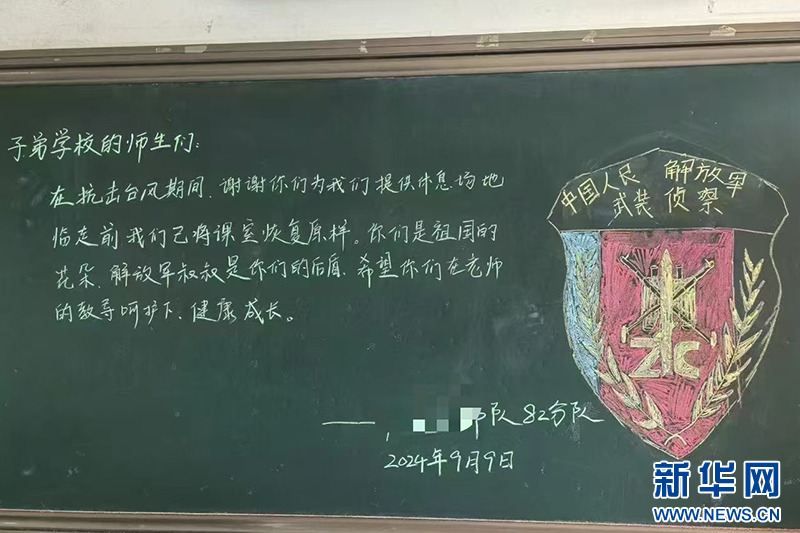 子弟学校的师生们:
在抗击台风期间、谢谢你们为我们提供休息场地
临走前我们已将课室恢复原样。你们是祖国的
花朵、解放军叔叔是你们的后盾、希望你们在老师
的教导呵护下、健康成长。
部队82分队
2024年9月9日
中国人民 解放军
武装侦察
ZC
新华网
WWW.NEWS.CN